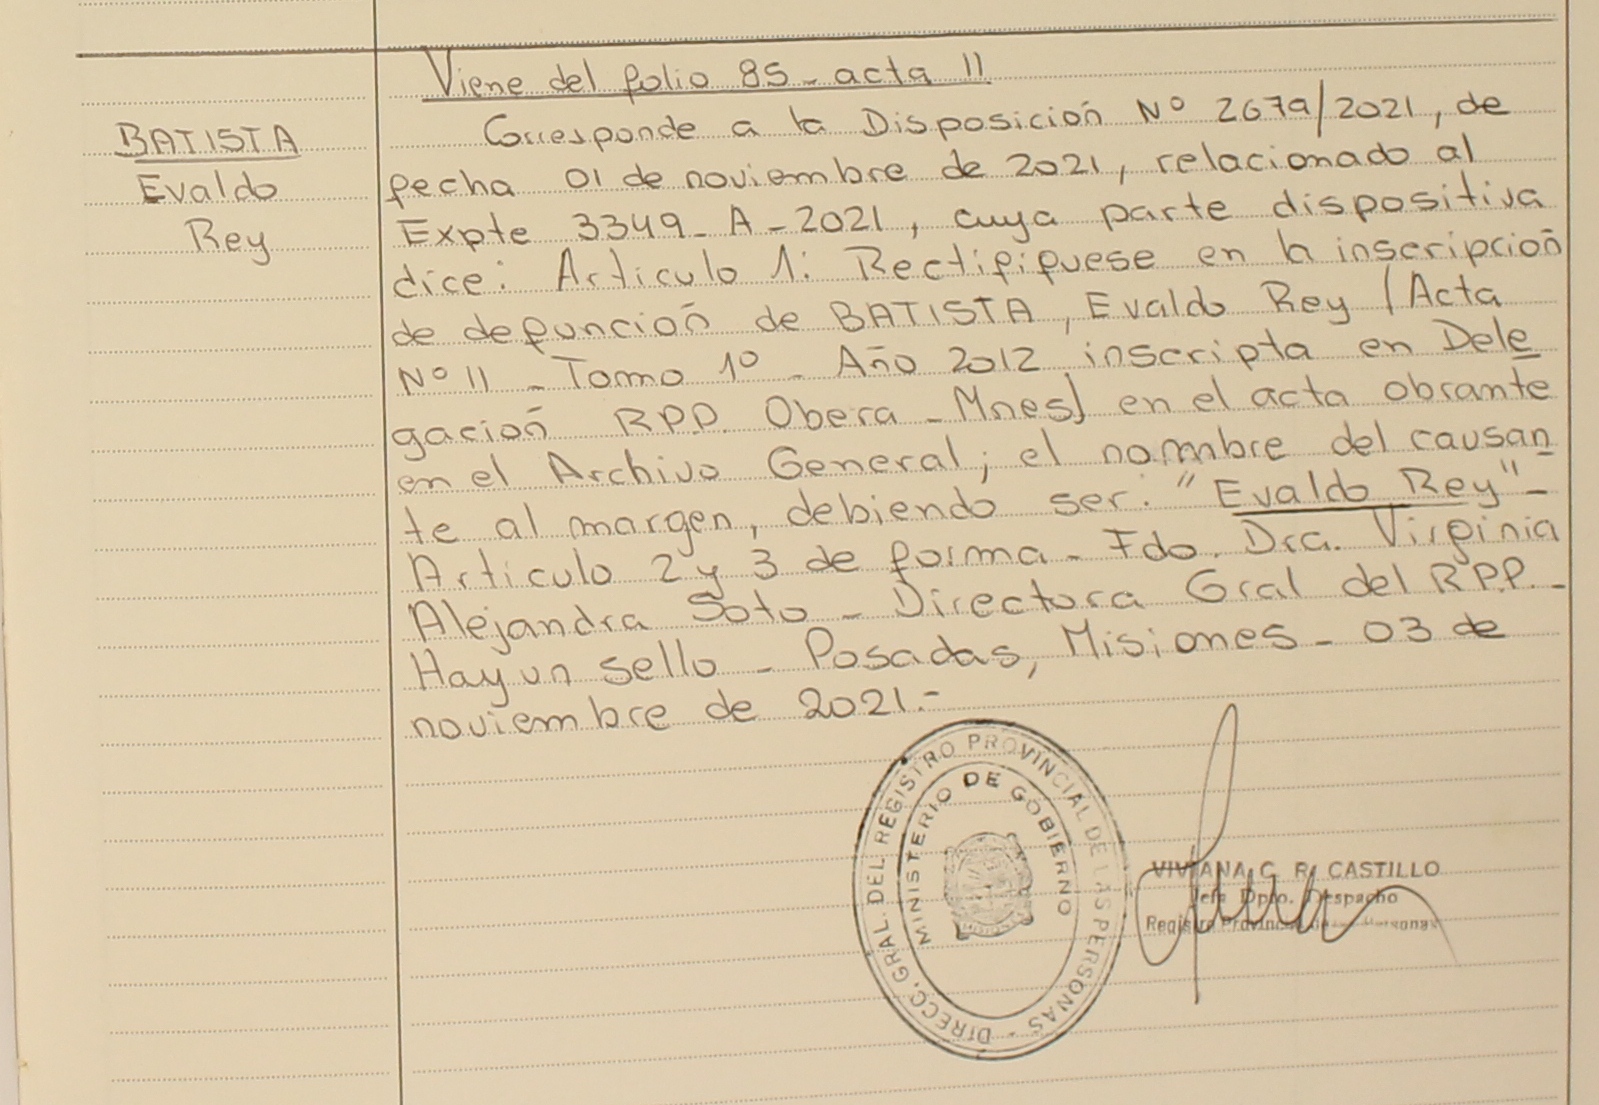 Viene del folio 85 - acta 11
BATISTA
Evaldo
Rey
Corresponde a la Disposición Nº 2679/2021, de
fecha 01 de noviembre de 2021, relacionado al
Expte 3349 - A - 2021, cuya parte dispositiva
dice: Articulo 1: Rectifífuese en la inscripción
de defunción de BATISTA, Evaldo Rey (Acta
Nº 11 - Tomo 1º - Año 2012 inscripta en Dele
gación RPP. Obera - Mnes) en el acta obrante
en el Archivo General; el nombre del causan
te al margen, debiendo ser: "Evaldo Rey" -
Articulo 2 y 3 de forma - Fdo. Dra. Virginia
Alejandra Soto - Directora Gral del RPP. -
Hay un sello - Posadas, Misiones - 03 de
noviembre de 2021.-
DIRECC. GRAL. DEL REGISTRO PROVINCIAL DE LAS PERSONAS -
MINISTERIO DE GOBIERNO
VIVIANA C. R. CASTILLO
Jefa Dpto. Despacho
Registro Provincial de las Personas